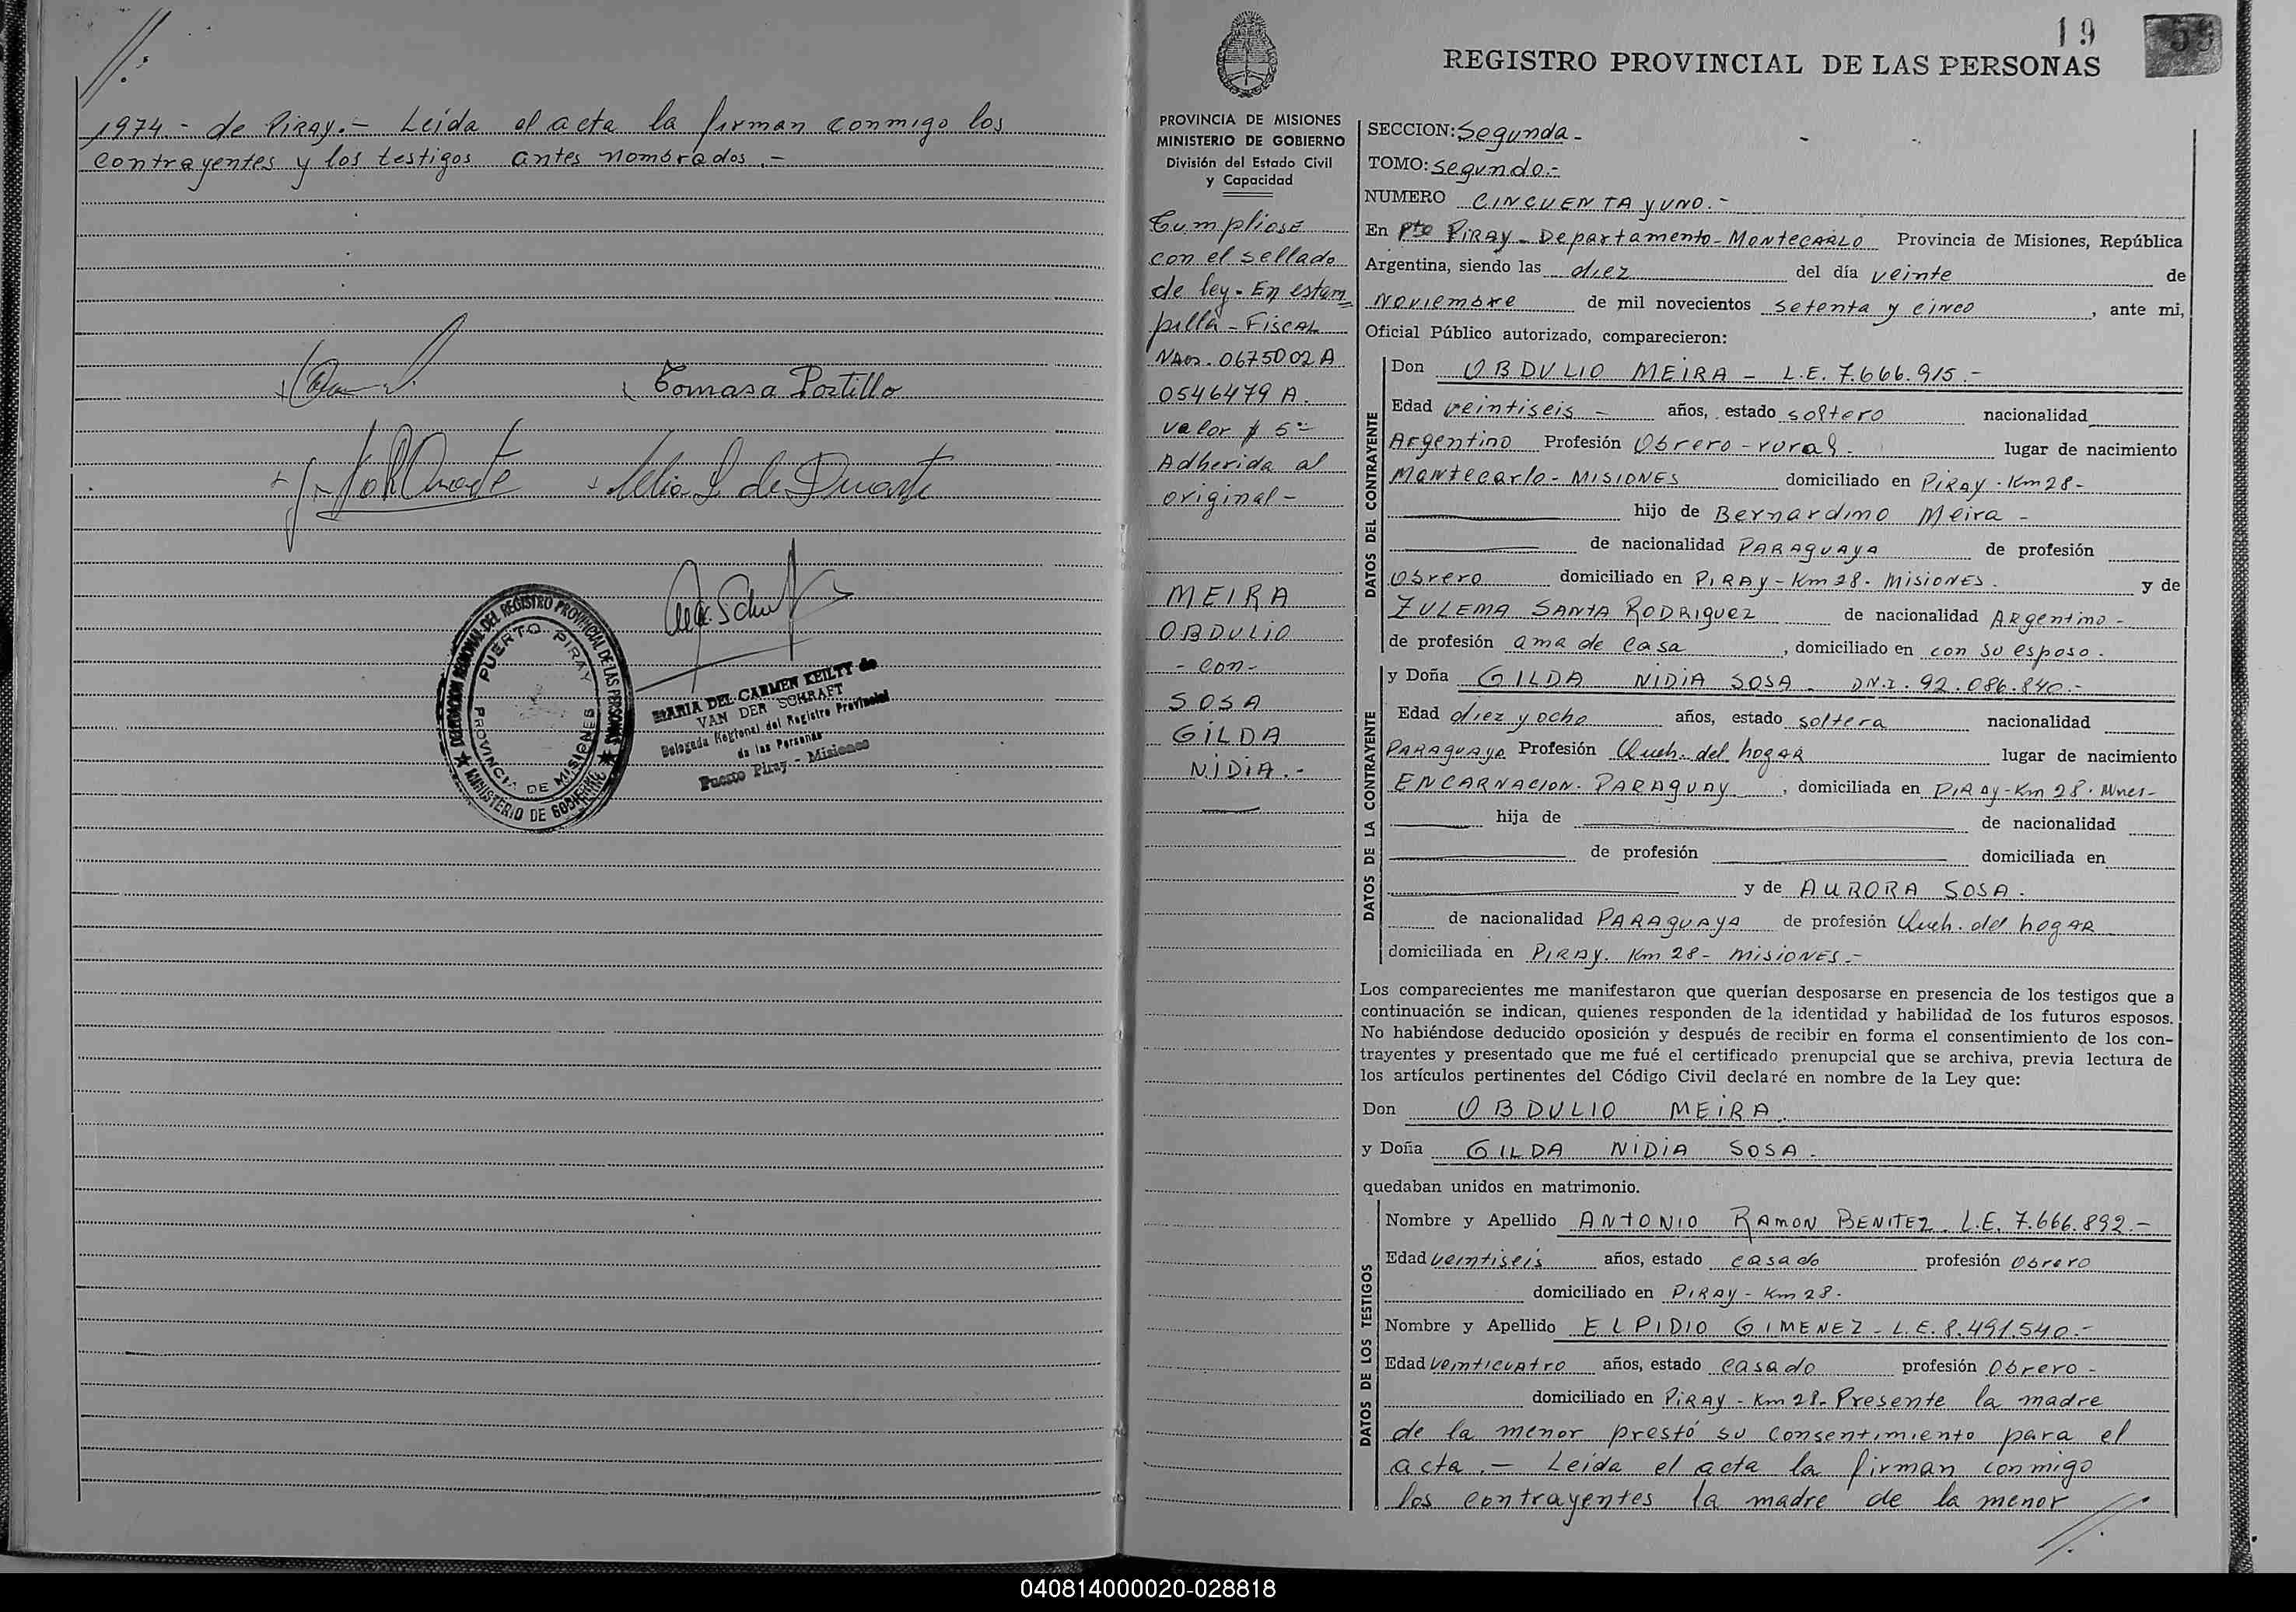 //.
1974 - de Piray.- Leída el acta la firman conmigo los
contrayentes y los testigos antes nombrados.-
Tomasa Portillo
Delia L de Duarte
DELEGACION REGIONAL DEL REGISTRO PROVINCIAL DE LAS PERSONAS
MINISTERIO DE GOBIERNO
PUERTO PIRAY
PROVINCIA DE MISIONES
MARIA DEL CARMEN KEILTY de
VAN DER SCHRAFT
Delegada Regional del Registro Provincial
de las Personas
Puerto Piray - Misiones
19
59
REGISTRO PROVINCIAL DE LAS PERSONAS
PROVINCIA DE MISIONES
MINISTERIO DE GOBIERNO
División del Estado Civil
y Capacidad
Cumpliose
con el sellado
de ley - En estam=
pilla - Fiscal
Nros. 0675002 A
0546479 A.
valor $ 5
Adherida al
original -
MEIRA
OBDULIO
- con -
SOSA
GILDA
NIDIA.-
SECCION: Segunda -
TOMO: Segundo.-
NUMERO CINCUENTA y UNO.-
En Pto PIRAY - Departamento - MONTECARLO Provincia de Misiones, República
Argentina, siendo las diez del día veinte de
Noviembre de mil novecientos setenta y cinco, ante mi,
Oficial Público autorizado, comparecieron:
DATOS DEL CONTRAYENTE
Don OBDULIO MEIRA - L.E. 7.666.915.-
Edad veintiseis - años, estado soltero nacionalidad
Argentino Profesión Obrero - rural. lugar de nacimiento
Montecarlo - MISIONES domiciliado en PIRAY - Km 28 -
hijo de Bernardino Meira -
de nacionalidad PARAGUAYA de profesión
Obrero domiciliado en PIRAY - Km 28 - MISIONES. y de
ZULEMA SANTA RODRIGUEZ de nacionalidad ARgentino -
de profesión ama de casa, domiciliado en con su esposo.
DATOS DE LA CONTRAYENTE
y Doña GILDA NIDIA SOSA - DN.I. 92.086.840.-
Edad diez y ocho años, estado soltera nacionalidad
PARAGUAYA Profesión Queh. del hogar lugar de nacimiento
ENCARNACION - PARAGUAY, domiciliada en PIRAY - Km 28 - Mnes -
hija de de nacionalidad
de profesión domiciliada en
y de AURORA SOSA.
de nacionalidad PARAGUAYA de profesión Queh. del hogar
domiciliada en PIRAY. Km 28 - MISIONES.-
Los comparecientes me manifestaron que querían desposarse en presencia de los testigos que a
continuación se indican, quienes responden de la identidad y habilidad de los futuros esposos.
No habiéndose deducido oposición y después de recibir en forma el consentimiento de los con-
trayentes y presentado que me fué el certificado prenupcial que se archiva, previa lectura de
los artículos pertinentes del Código Civil declaré en nombre de la Ley que:
Don OBDULIO MEIRA.
y Doña GILDA NIDIA SOSA.
quedaban unidos en matrimonio.
DATOS DE LOS TESTIGOS
Nombre y Apellido ANTONIO RAMON BENITEZ - L.E. 7.666.892.-
Edad veintiseis años, estado casado profesión Obrero
domiciliado en PIRAY - Km 28.
Nombre y Apellido ELPIDIO GIMENEZ - L.E. 8.491.540.-
Edad veinticuatro años, estado casado profesión Obrero -
domiciliado en PIRAY - Km 28. Presente la madre
de la menor prestó su consentimiento para el
acta.- Leida el acta la firman conmigo
los contrayentes la madre de la menor
//.
040814000020-028818